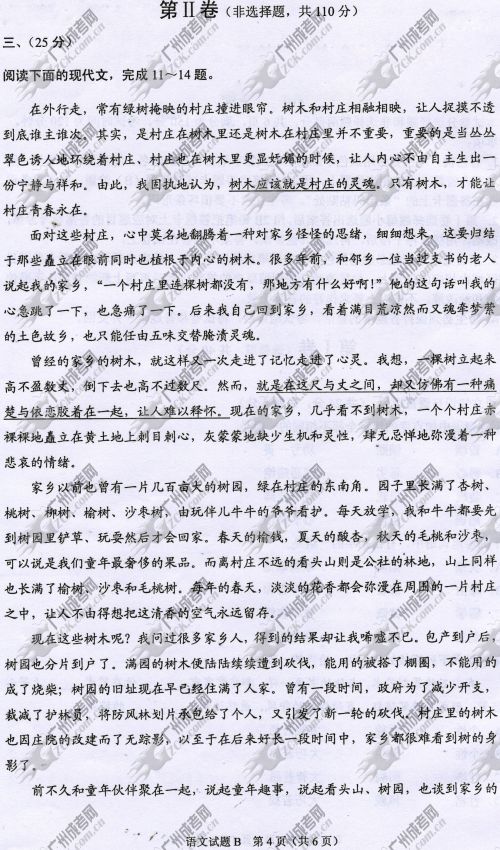 第Ⅱ卷（非选择题，共110分）
三、（25分）
阅读下面的现代文，完成11～14题。
在外行走，常有绿树掩映的村庄撞进眼帘。树木和村庄相融相映，让人捉摸不透
到底谁主谁次。其实，是村庄在树木里还是树木在村庄里并不重要，重要的是当丛丛
翠色诱人地环绕着村庄、村庄也在树木里更显妩媚的时候，让人内心不由自主生出一
份宁静与祥和。由此，我固执地认为，树木应该就是村庄的灵魂。只有树木，才能让
村庄青春永在。
面对这些村庄，心中莫名地翻腾着一种对家乡怪怪的思绪，细细想来，这要归结
于那些矗立在眼前同时也植根于内心的树木。很多年前，和邻乡一位当过支书的老人
说起我的家乡，“一个村庄里连棵树都没有，那地方有什么好啊！”他的这句话叫我的
心急跳了一下，也急痛了一下。后来我自己回到家乡，看着满目荒凉然而又魂牵梦萦
的土色故乡，也只能任由五味交替腌渍灵魂。
曾经的家乡的树木，就这样又一次走进了记忆走进了心灵。我想，一棵树立起来
高不盈数丈，倒下去也高不过数尺。然而，就是在这尺与丈之间，却又仿佛有一种痛
楚与依恋胶着在一起，让人难以释怀。现在的家乡，几乎看不到树木，一个个村庄赤
裸裸地矗立在黄土地上刺目刺心，灰蒙蒙地缺少生机和灵性，肆无忌惮地弥漫着一种
悲哀的情绪。
家乡以前也曾有一片几百亩大的树园，绿在村庄的东南角。园子里长满了杏树、
桃树、柳树、榆树、沙枣树，由玩伴儿牛牛的爷爷看护。每天放学，我和牛牛都要先
到树园里铲草、玩耍然后才会回家。春天的榆钱，夏天的酸杏，秋天的毛桃和沙枣，
可以说是我们童年最奢侈的果品。而离村庄不远的看头山则是公社的林地，山上同样
也长满了榆树、沙枣和毛桃树。每年的春天，淡淡的花香都会弥漫在周围的一片村庄
之中，让人不由得想把这清香的空气永远留存。
现在这些树木呢？我问过很多家乡人，得到的结果却让我唏嘘不已。包产到户后，
树园也分片到户了。满园的树木便陆陆续续遭到砍伐，能用的被搭了棚圈，不能用的
成了烧柴；树园的旧址现在早已经住满了人家。曾有一段时间，政府为了减少开支，
裁减了护林员，将防风林划片承包给了个人，又引发了新一轮的砍伐。村庄里的树木
也因庄院的改建而了无踪影，以至于在后来好长一段时间中，家乡都很难看到树的身
影了。
前不久和童年伙伴聚在一起，说起童年趣事，说起看头山、树园，也谈到家乡的
语文试题B 第4页（共6页）
广州成考网
CK.com.cn